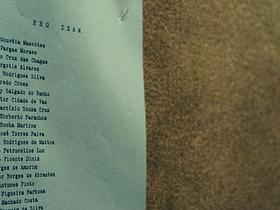 PRO TEAM
Gouvêia Mascotes
Vargas Moraes
o Cruz das Chagas
rgotis Alvares
Rodrigues Silva
redo Croes
y Salgado do Banho
tor Cidade de Vaz
arcizio Souza Cruz
Norberto Paranhos
Rocha Martins
José Torres Paiva
Rodrigues de Mattos
o Petrucellus Luz
o Vicente Dinis
rges de Amorim
or Borges de Abrantes
Antunes Pinto
Figueira Barbosa
Machado Costa
de Silva